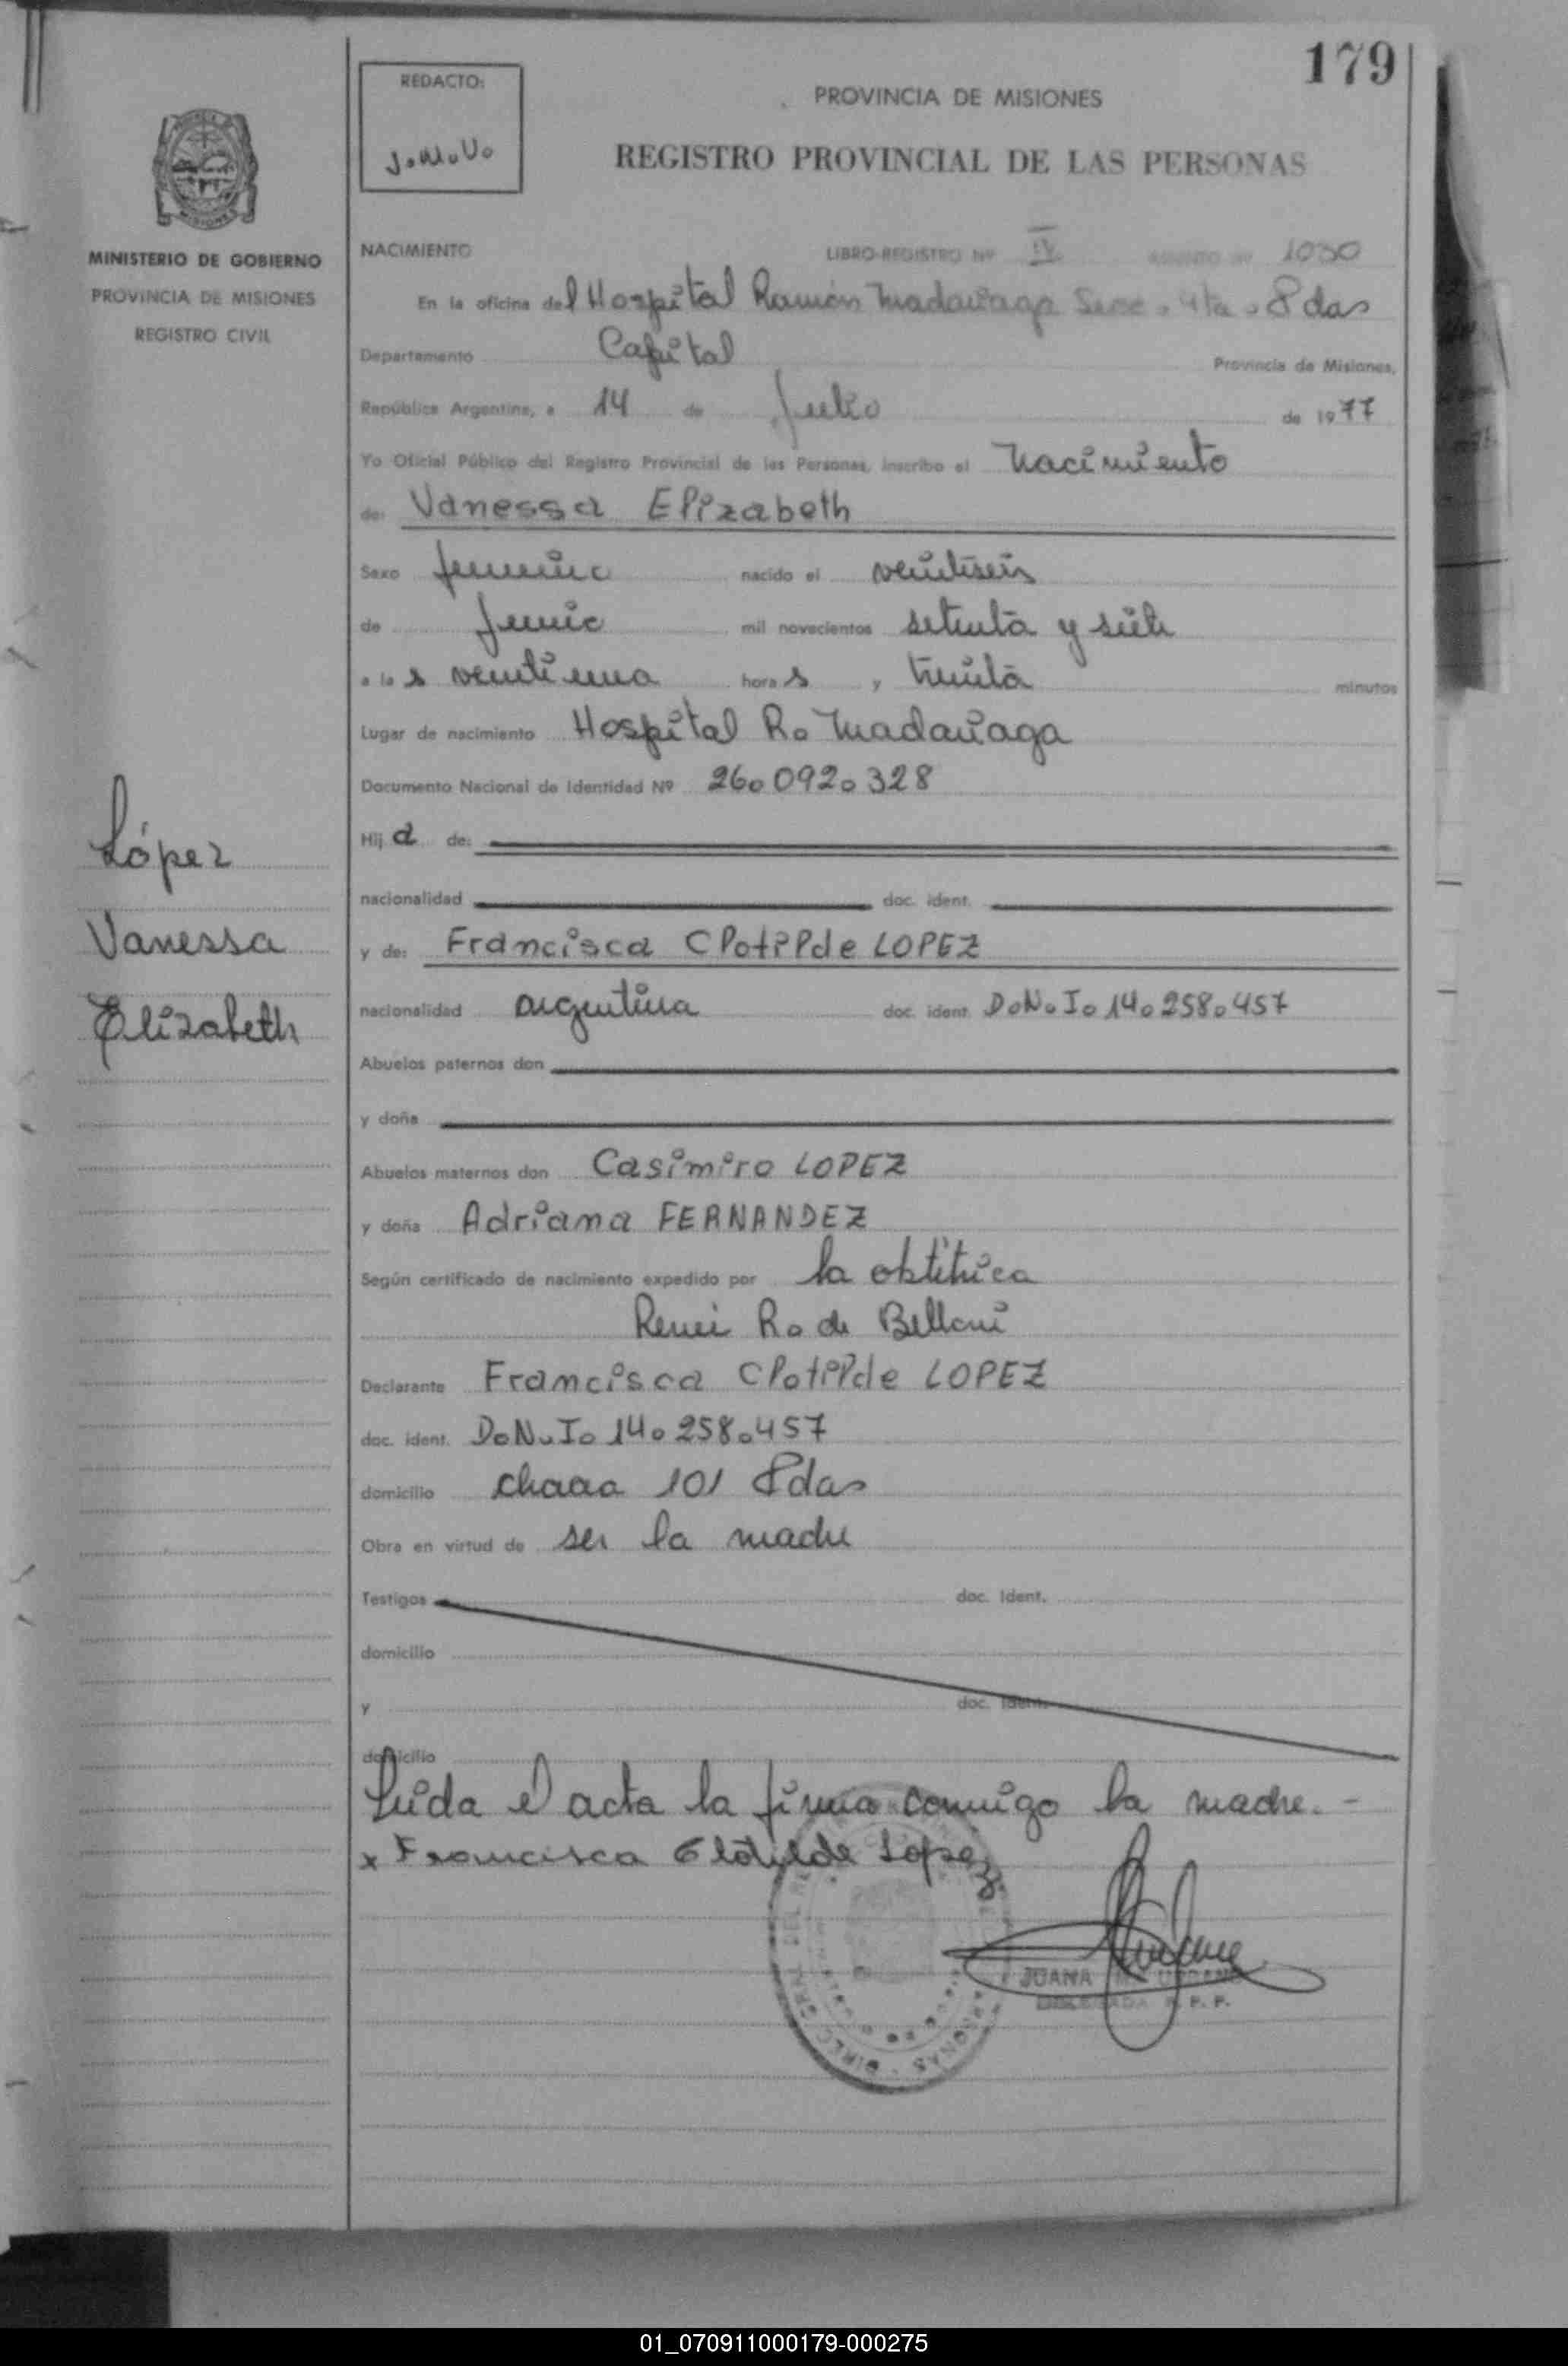 179
REDACTO:
J.M.U.
PROVINCIA DE MISIONES
REGISTRO PROVINCIAL DE LAS PERSONAS
MISIONES
MINISTERIO DE GOBIERNO
PROVINCIA DE MISIONES
REGISTRO CIVIL
NACIMIENTO LIBRO-REGISTRO Nº IV ASIENTO Nº 1030
En la oficina del Hospital Ramón Madariaga Secc. 4ta. Pdas
Departamento Capital Provincia de Misiones,
República Argentina, a 14 de Julio de 1977
Yo Oficial Público del Registro Provincial de las Personas, inscribo el Nacimiento
de: Vanessa Elizabeth
Sexo femenino nacido el veintiseis
de Junio mil novecientos setenta y siete
a las veintiuna horas y treinta minutos
Lugar de nacimiento Hospital R. Madariaga
Documento Nacional de Identidad Nº 26.092.328
Hija de:
nacionalidad doc. ident.
y de: Francisca Clotilde LOPEZ
nacionalidad argentina doc. ident. D.N.I. 14.258.457
Abuelos paternos don
y doña
Abuelos maternos don Casimiro LOPEZ
y doña Adriana FERNANDEZ
Según certificado de nacimiento expedido por la obstétrica
R. de Belloni
Declarante Francisca Clotilde LOPEZ
doc. ident. D.N.I. 14.258.457
domicilio chacra 101 Pdas
Obra en virtud de ser la madre
Testigos doc. Ident.
domicilio
y doc. Ident.
domicilio
Leida el acta la firma conmigo la madre. -
x Francisca Clotilde Lopez
JUANA M. URBANO
DELEGADA R. P. P.
López
Vanessa
Elizabeth
01_070911000179-000275